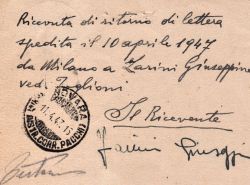 Ricevuta di ritorno di lettera
spedita il 10 aprile 1947
da Milano a Zarini Giuseppina
ved. Taglioni
Il Ricevente
Zarini Giusepp
POSTE CORR. PACCHI